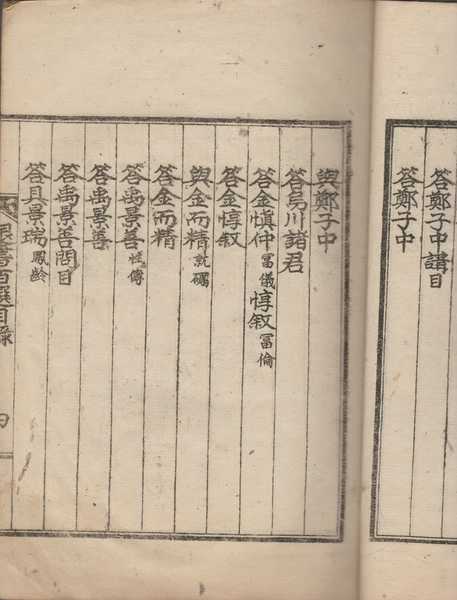 答鄭子中講目
答鄭子中
與鄭子中
答烏川諸君
答金愼仲富儀惇叙富倫
答金惇叙
與金而精就礪
答金而精
答禹景善性傳
答禹景善
答禹景善問目
答具景瑞鳳齡
書百選目錄